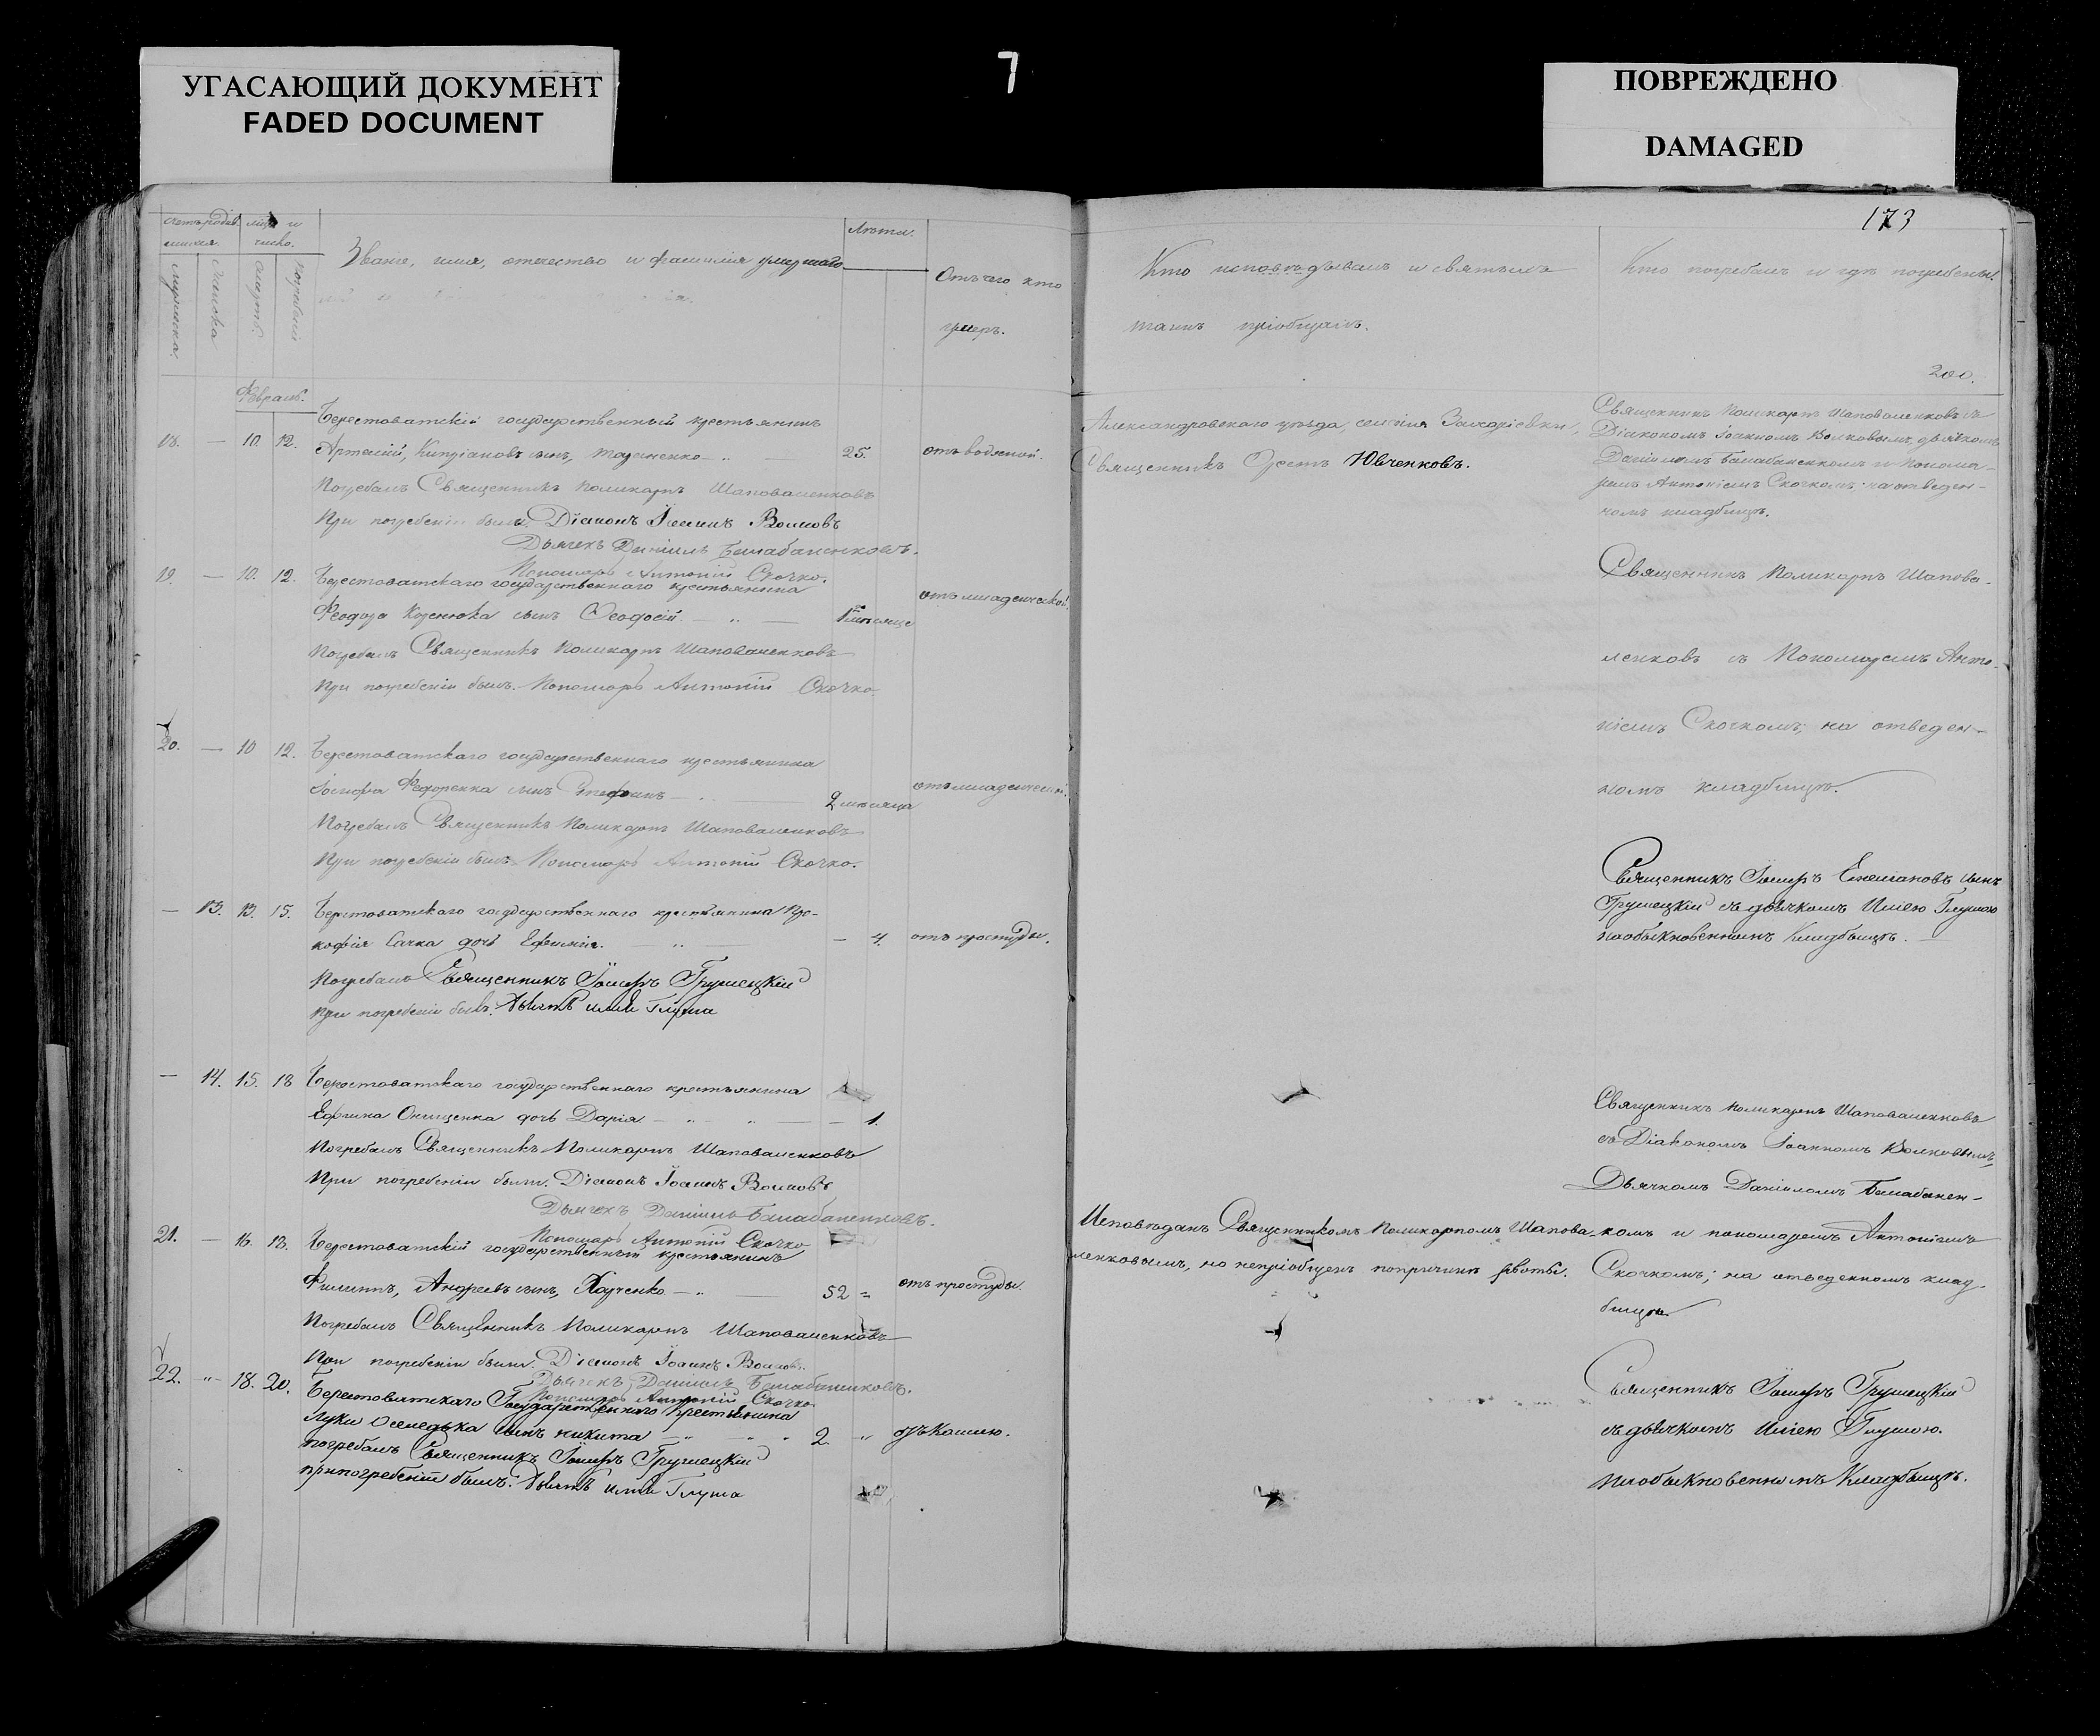 УГАСАЮЩИЙ ДОКУМЕНТ
FADED DOCUMENT
7
ПОВРЕЖДЕНО
DAMAGED
173
Счетъ
мѣсяцъ и
число.
Лѣта.
Званіе, имя, отчество и фамилія умершаго
Отъ чего кто
умеръ.
Кто исповѣдывалъ и святыхъ
таинъ пріобщалъ.
Кто погребалъ и гдѣ погребены
200.
Февраль.
18. — 10. 12. Берестоватскій государственный крестьянинъ
Артемій, Кипріановъ сынъ, — 25. отъ водяной.
Погребалъ Священникъ Поликарпъ Шаповаленковъ
При погребеніи были: Діаконъ Іоаннъ Волковъ
Дьячекъ Даніилъ Балабаненковъ.
Пономарь Антоній Скочко.
Александровскаго уѣзда, селенія Захаріевки,
Священникъ Орестъ Ювченковъ.
Священникъ Поликарпъ Шаповаленковъ съ
Діакономъ Іоанномъ Волковымъ, дьячкомъ
Даніиломъ Балабаненкомъ и Понома-
ремъ Антоніемъ Скочкомъ: на отведен-
номъ кладбищѣ.
19. — 10. 12. Берестоватскаго государственнаго крестьянина
Феодора сынъ Феодосій — 1 мѣсяца отъ младенческой
Погребалъ Священникъ Поликарпъ Шаповаленковъ
При погребеніи былъ. Пономарь Антоній Скочко.
Священникъ Поликарпъ Шапова-
ленковъ съ Пономаремъ Анто-
ніемъ Скочкомъ; на отведен-
номъ кладбищѣ.
20. — 10 12. Берестоватскаго государственнаго крестьянина
Іосифа Федоренка сынъ Стефанъ — 2 мѣсяца отъ младенческой.
Погребалъ Священникъ Поликарпъ Шаповаленковъ
При погребеніи былъ Пономарь Антоній Скочко.
— 13. 13. 15. Берестоватскаго государственнаго крестьянина Про-
кофія Сачка дочь Ефимія. — 4. отъ простуды.
Погребалъ Священникъ Іосифъ Грушецкій
При погребеніи былъ: Глуша
Священникъ Іосифъ сынъ
Грушецкій съ дьячкомъ Ильею Глушою
наобыкновенномъ Кладбищѣ.
— 14. 15. 18 Берестоватскаго государственнаго крестьянина
Ефима Онищенка дочь Дарія — 1.
Погребалъ Священникъ Поликарпъ Шаповаленковъ
При погребеніи были. Діаконъ Іоаннъ Волковъ
Дьячекъ Даніилъ Балабаненковъ.
Пономарь Антоній Скочко
Священникъ Поликарпъ Шаповаленковъ
съ Діакономъ Іоанномъ Волковымъ,
Дьячкомъ Даніиломъ Балабанен-
комъ и пономаремъ Антоніемъ
Скочкомъ; на отведенномъ клад-
бищѣ
21. — 16. 18. Берестоватскій государственный крестьянинъ
Филиппъ, Андреевъ сынъ, Харченко — 52 = отъ простуды.
Погребалъ Священникъ Поликарпъ Шаповаленковъ
При погребеніи были. Діаконъ Іоаннъ Волковъ.
Дьячекъ Даніилъ Балабаненковъ.
Пономарь Антоній Скочко
Исповѣданъ Священникомъ Поликарпомъ Шапова-
ленковымъ, но непріобщенъ попричинѣ рвоты.
22. " 18. 20. Берестоватскаго Государственнаго Крестьянина
Луки Оселедька сынъ никита — 2. " отъ Кашлю.
погребалъ Священникъ Іосифъ Грушецкій
припогребеніи былъ: Глуша
Священникъ Іосифъ Грушецкій
съ дьячкомъ Ильею Глушою.
наобыкновенномъ Кладбищѣ.